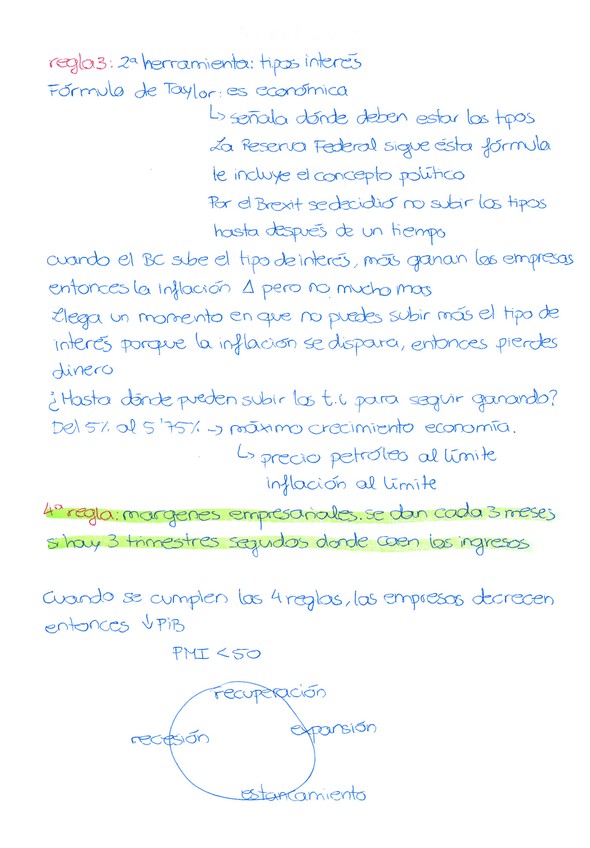 regla3: 2ª herramienta: tipos interés
Fórmula de Taylor: es económica
↳ señala dónde deben estar los tipos
La Reserva Federal sigue ésta fórmula
le incluye el concepto político
Por el Brexit se decidió no subir los tipos
hasta después de un tiempo
cuando el BC sube el tipo de interés, más ganan las empresas
entonces la inflación Δ pero no mucho mas
Llega un momento en que no puedes subir más el tipo de
interés porque la inflación se dispara, entonces pierdes
dinero
¿Hasta dónde pueden subir los t.i para seguir ganando?
Del 5% al 5'75% → máximo crecimiento economía.
↳ precio petróleo al límite
inflación al límite
4ª regla: margenes empresariales. se dan cada 3 meses
si hay 3 trimestres seguidos donde caen los ingresos
Cuando se cumplen las 4 reglas, las empresas decrecen
entonces ↓ PiB
PMI < 50
recuperación
expansión
recesión
estancamiento